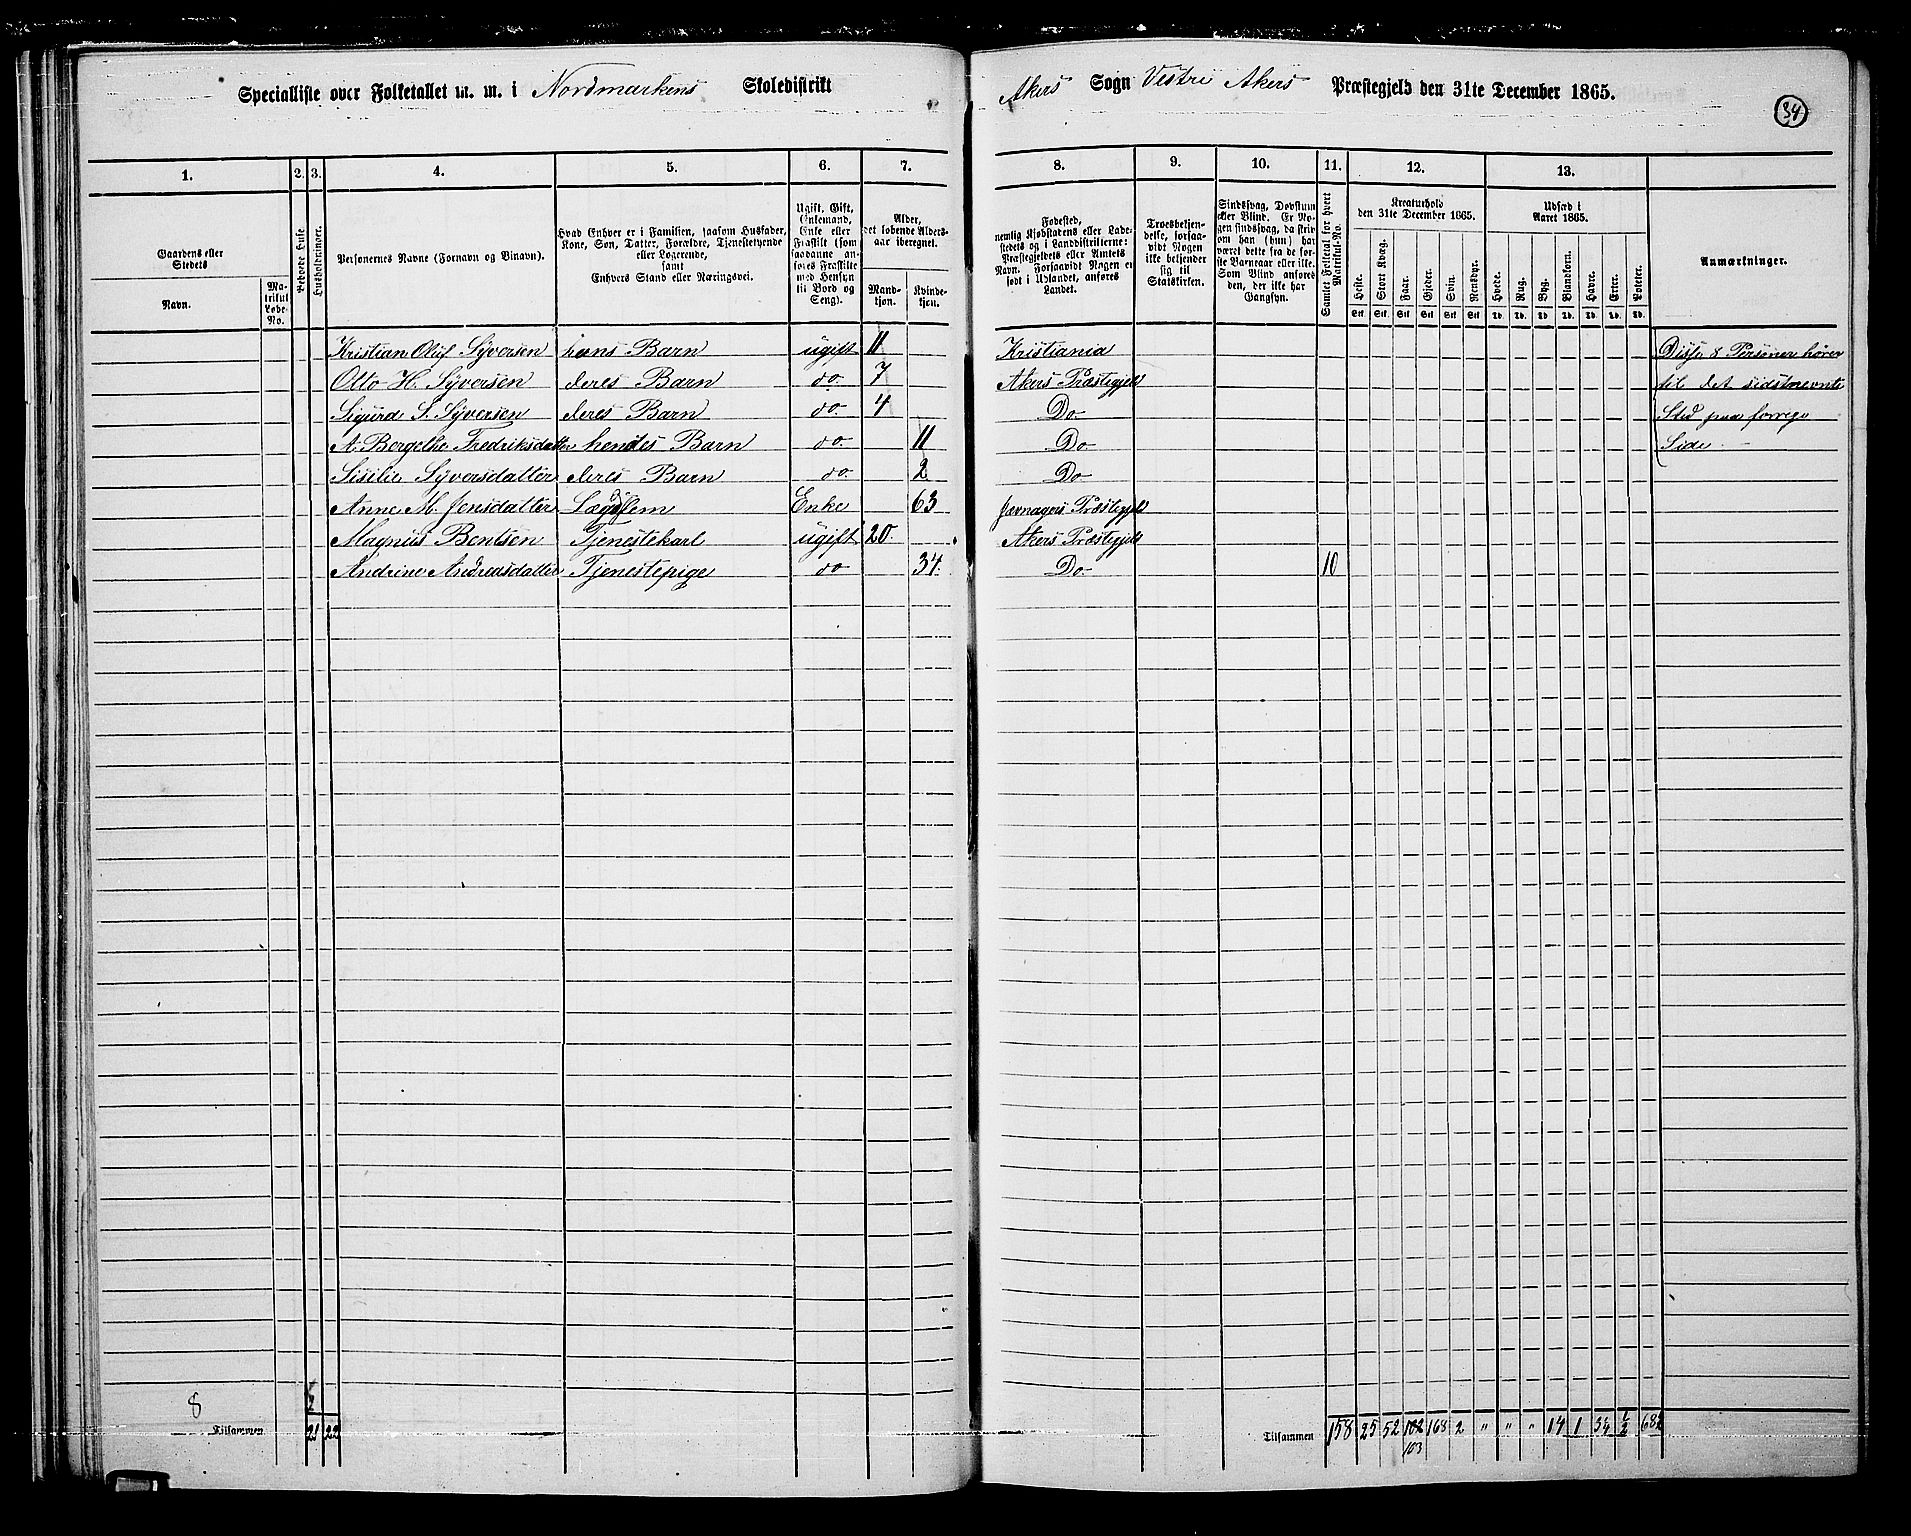 Specialliste over Folketallet m. m. i Nordmarkens Skoledistrikt Akers Sogn Vestre Akers Præstegjeld den 31te December 1865.
34
1. 2. 3. 4. 5. 6. 7. 8. 9. 10. 11. 12. 13.
Gaardens eller Stedets
Navn.
Matrikul Løbe-No.
Beboede Huse.
Husholdninger.
Personernes Navne (Fornavn og Binavn).
Hvad Enhver er i Familien, saasom Husfader, Kone, Søn, Datter, Forældre, Tjenestetyende eller Logerende, samt Enhvers Stand eller Næringsvei.
Ugift, Gift, Enkemand, Enke eller Fraskilt (som saadanne anføres Fraskilte med Hensyn til Bord og Seng).
Alder, det løbende Alders-aar iberegnet.
Mandkjøn.
Kvindekjøn.
Fødested, nemlig Kjøbstadens eller Ladestedets og i Landdistrikterne: Præstegjeldets eller Amtets Navn. Forsaavidt Nogen er født i Udlandet, anføres Landet.
Troesbekjendelse, forsaavidt Nogen ikke bekjender sig til Statskirken.
Sindssvag, Døvstum eller Blind. Er Nogen sindssvag, da skrives om han (hun) har været dette fra de første Barneaar eller ikke. Som Blind anføres den, der ikke har Gangsyn.
Samlet Folketal for hvert Matrikul-No.
Kreaturhold den 31te December 1865.
Heste. Stort Kvæg. Faar. Gjeder. Svin. Rensdyr.
Stk. Stk. Stk. Stk. Stk. Stk.
Udsæd i Aaret 1865.
Hvede. Rug. Byg. Blandkorn. Havre. Erter. Poteter.
Td. Td. Td. Td. Td. Td. Td.
Anmærkninger.
Kristian Oluf Syversen hans Barn ugift 11 Kristiania Disse 8 Personer hører
Otto H. Syversen deres Barn do. 7 Akers Præstegjeld til det sidstnevnte
Sigurd S. Syversen deres Barn do. 4 Do Sted paa forrige
A. Bergethe Fredriksdatter hendes Barn do. 11 Do Side.
Sisilie Syversdatter deres Barn do. 2 Do
Anne M. Jensdatter Lægdslem Enke 63 Jævnagers Præstegjeld
Magnus Bentsen Tjenestekarl ugift 20. Akers Præstegjeld
Andrine Andreasdatter Tjenestepige do 34. Do. 10
8
Tilsammen 21 22 Tilsammen 158 25 52 102 168 2 " " " 14 1 34 1/2 682
103